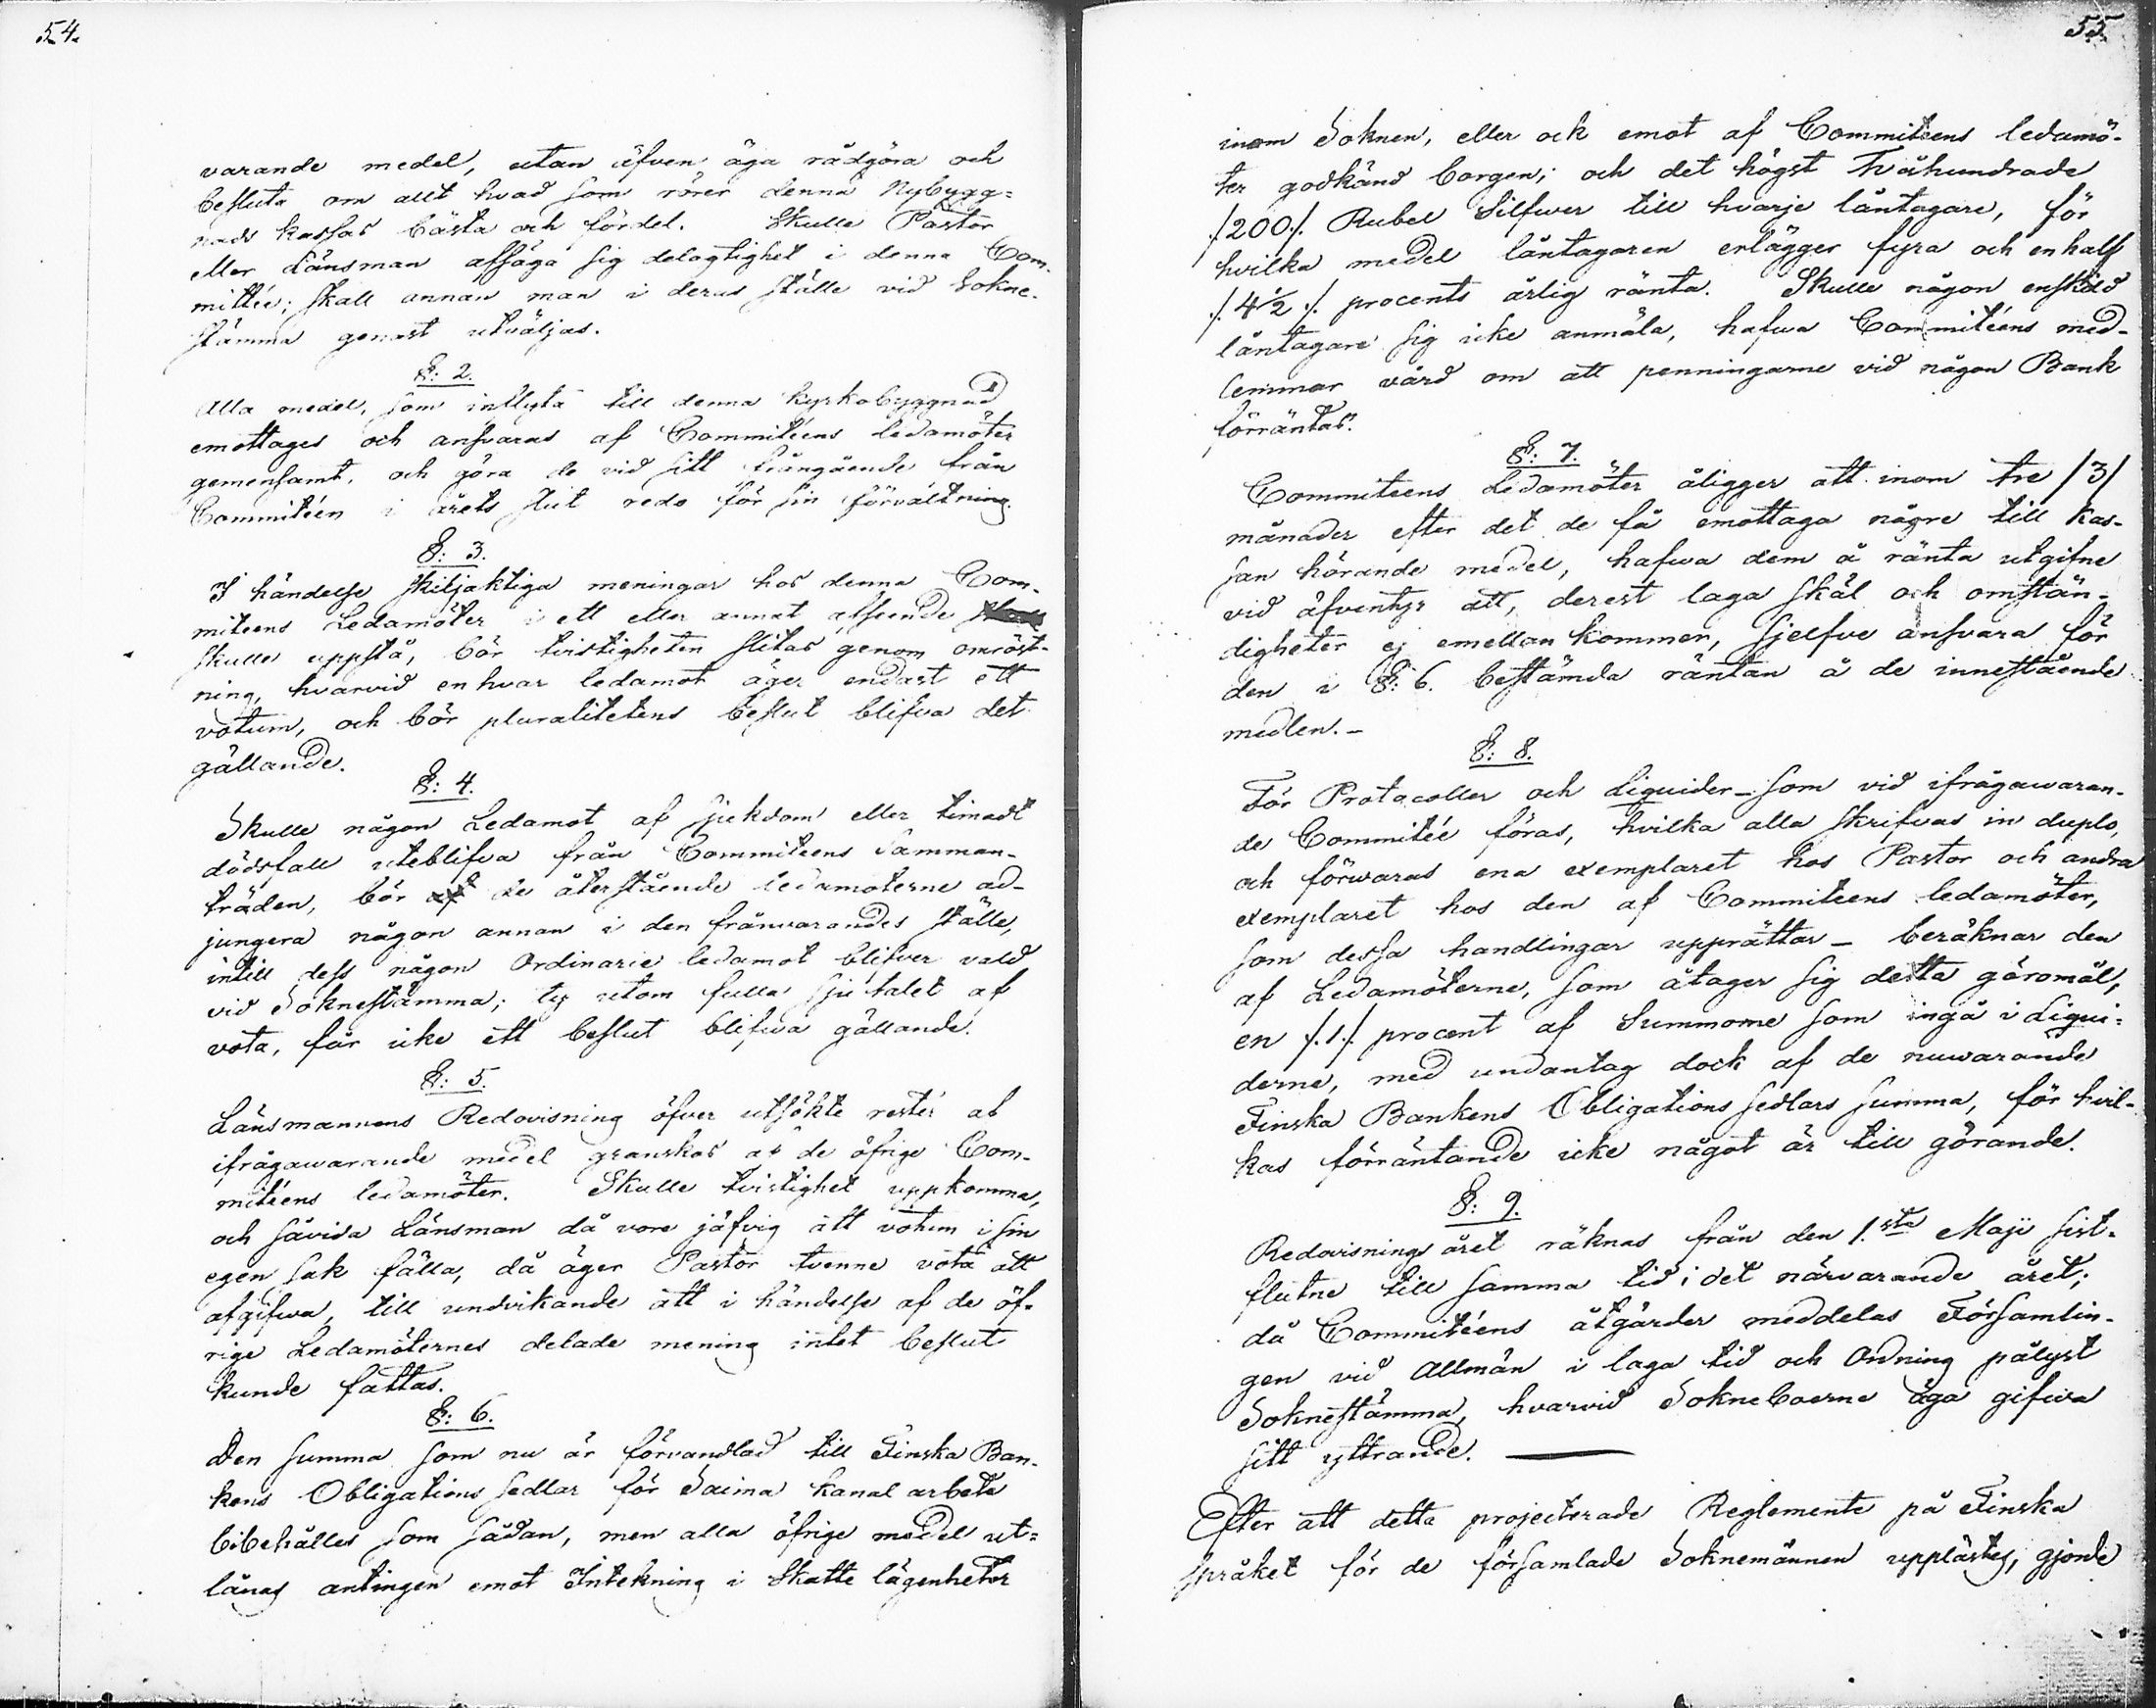 54.
varande medel, utan äfven äga rådgöra och
besluta om allt hvad som rörer denna Nybygg=
nads kassas bästa och fördel. Skulle Pastor
eller Länsman afsäga sig delagtighet i denna Com-
mittée; skall annan man i deras ställe vid Sokne-
stämma genast utväljas.
§: 2.
Alla medel, som inflyta till denna kyrkobyggnad
emottages och ansvaras af Commitéens ledamöter
gemensamt, och göra de vid sitt frångående från
Commitéen i årets slut redo för sin förvaltning.
§: 3.
I händelse skiljaktiga meningar hos denna Com-
miteens Ledamöter i ett eller annat afseende
skulle uppstå, bör tvistigheten slitas genom omröst-
ning, hvarvid en hvar ledamot äger endast ett
votum, och bör pluralitetens beslut blifva det
gällande.
§: 4.
Skulle någon Ledamot af sjukdom eller timadt
dödsfall uteblifva från Commiteens samman-
träden, bör de återstående ledamoterne ad-
jungera någon annan i den frånvarandes ställe,
intill dess någon Ordinarie ledamot blifver vald
vid Soknestämma; ty utom fulla sju talet af
vota, får icke ett beslut blifwa gällande.
§: 5.
Länsmannens Redovisning öfver utsökte rester af
ifrågawarande medel granskas af de öfrige Com-
mitéens ledamöter. Skulle tvistighet uppkomma,
och såvida Länsman då vore jäfvig att votum i sin
egen sak fälla, då äger Pastor tvenne vota att
afgifwa, till undvikande att i händelse af de öf-
rige Ledamöternes delade mening intet beslut
kunde fattas.
§: 6.
Den summa som nu är förvandlad till Finska Ban-
kens Obligations sedlar för Saima kanal arbete
bibehålles som sådan, men alla öfrige medel ut=
lånas antingen emot Intekning i Skatte lägenheter
55.
inom Soknen, eller ock emot af Commiteens ledamö-
ter godkänd borgen; och det högst Tvåhundrade
/.200/. Rubel Silfwer till hvarje låntagare, för
hvilka medel låntagaren erlägger fyra och en half
/. 4½ /. procents årlig ränta. Skulle någon enskild
låntagare sig icke anmäla, hafwa Commitéens med-
lemmar vård om att penningarne vid någon Bank
förräntas.
§: 7.
Commiteens Ledamöter åligger att inom tre /3/
månader efter det de få emottaga någre till kas-
san hörande medel, hafwa dem å ränta utgifne
vid äfventyr att, derest laga skäl och omstän-
digheter ej emellan kommer, sjelfve ansvara för
den i §: 6. bestämda räntan å de innestående
medlen. -
§: 8.
För Protocoller och Liquider - som vid ifrågawaran-
de Commitée föras, hvilka alla skrifvas in duplo,
och förwaras ena exemplaret hos Pastor och andra
exemplaret hos den af Commiteens ledamöter,
som dessa handlingar upprättar - beräknar den
af Ledamöterne, som åtager sig detta göromål,
en /.1./ procent af Summorne som ingå i Liqui-
derne, med undantag dock af de nuwarande
Finska Bankens Obligations sedlars summa, för hvil-
kas förräntande icke något är till görande.
§: 9.
Redovisnings året räknas från den 1.sta Maji sist-
flutne till samma tid i det närvarande året;
då Commitéens åtgärder meddelas Församlin-
gen vid Allmän i laga tid och Ordning pålyst
Soknestämma, hvarvid Sokneboerne äga gifwa
sitt yttrande.
Efter att detta projecterade Reglemente på Finska
språket för de församlade Soknemännen upplästes, gjorde